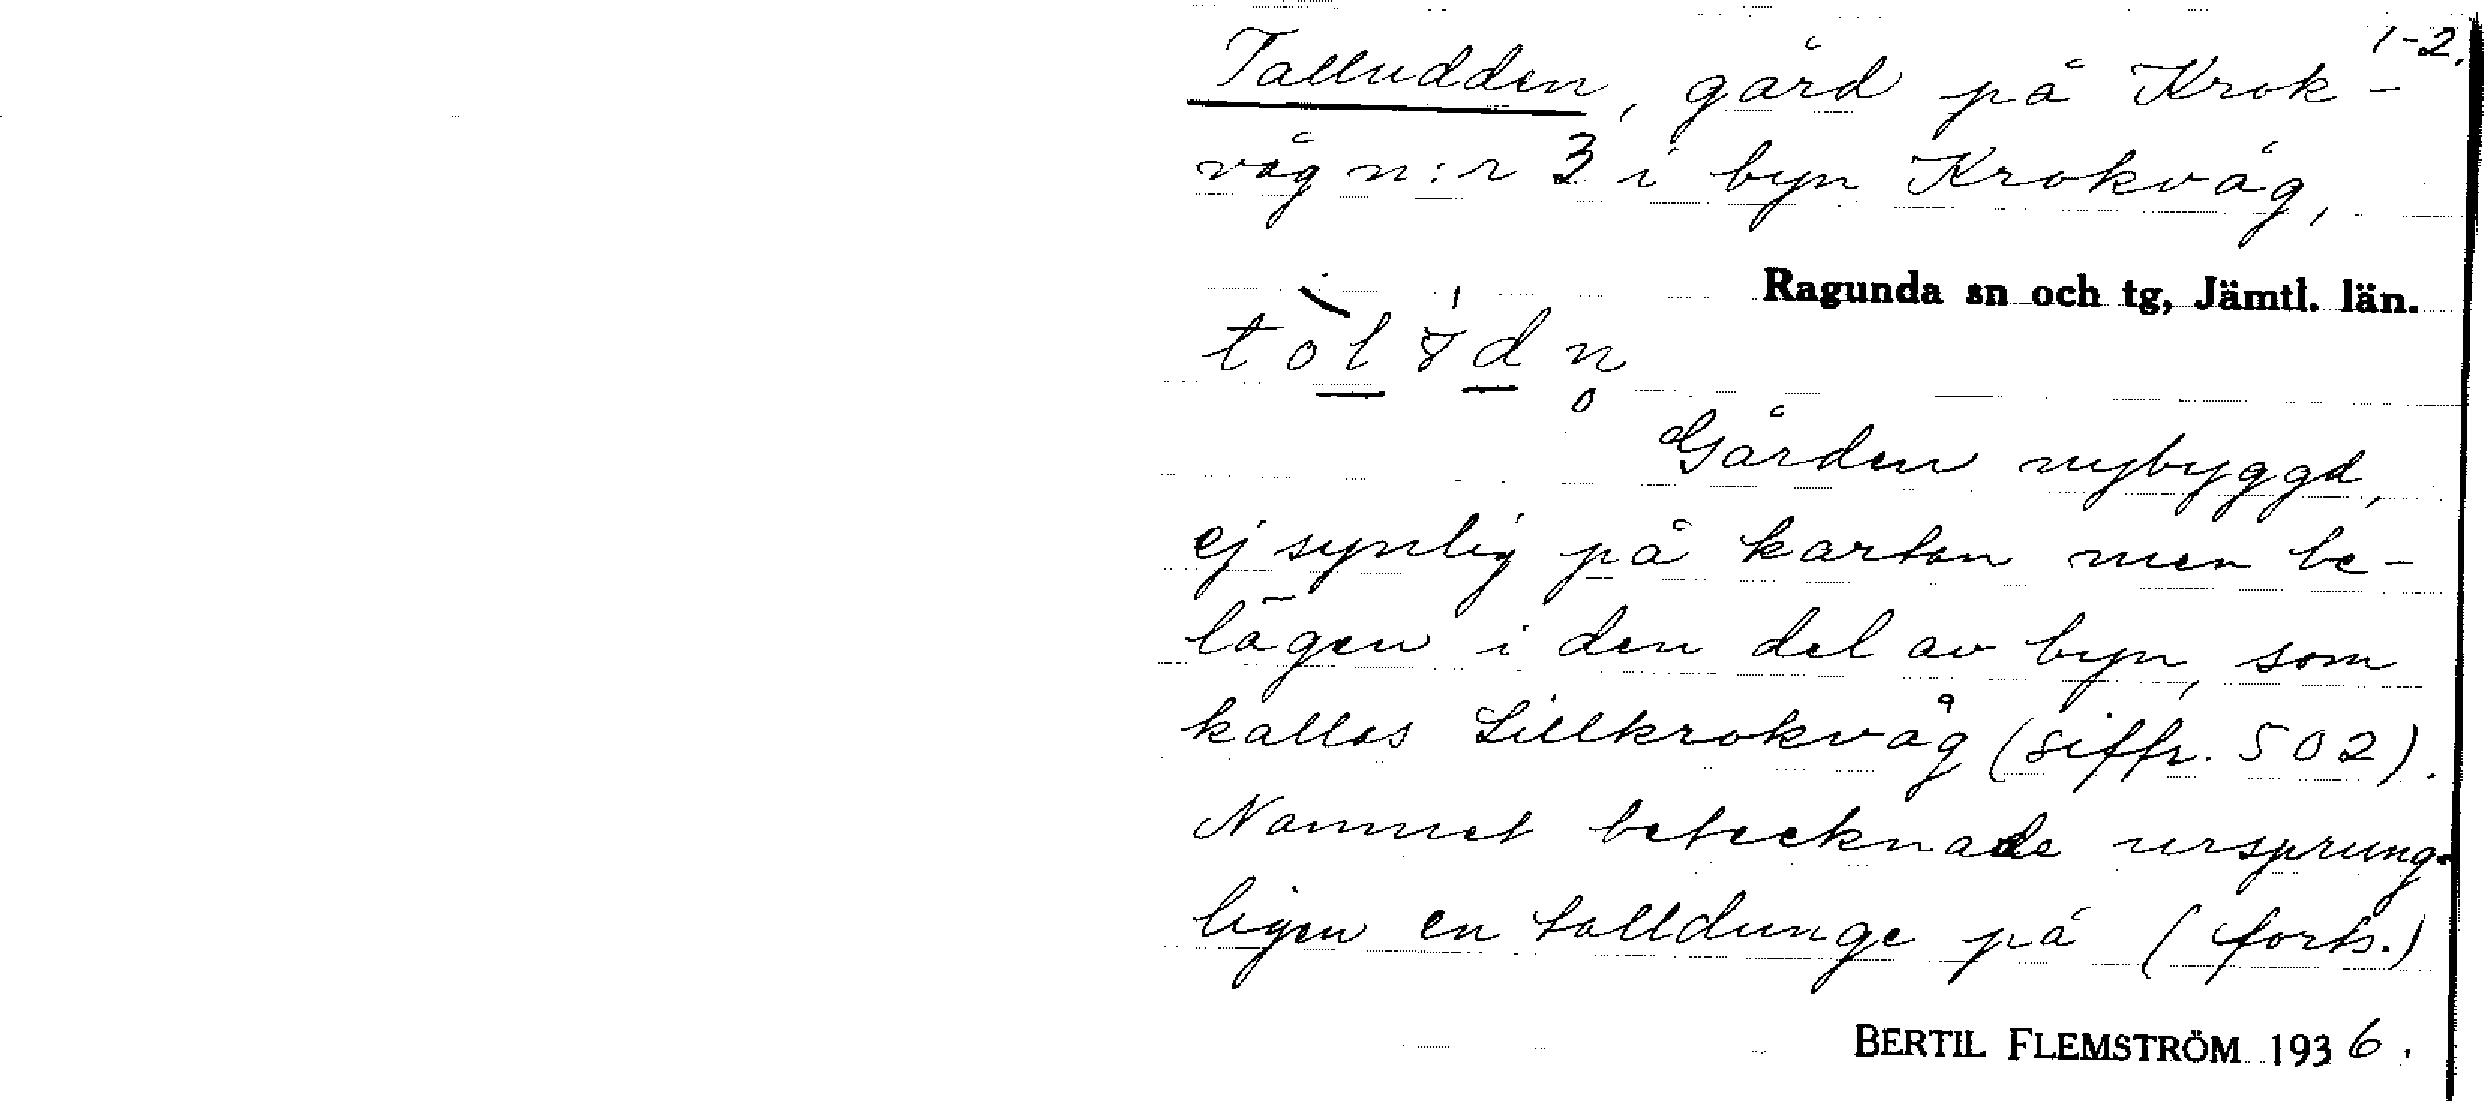 1-2.
Talludden, gård på Krok-
våg n:r 3 i byn Krokvåg,
Ragunda sn och tg, Jämtl. län.
Gården nybyggd,
ej synlig på kartan men be-
lägen i den del av byn, som
kallas Lillkrokvåg (siffr. 502).
Namnet betecknade ursprung-
ligen en talldunge på (forts.)
BERTIL FLEMSTRÖM 1936.